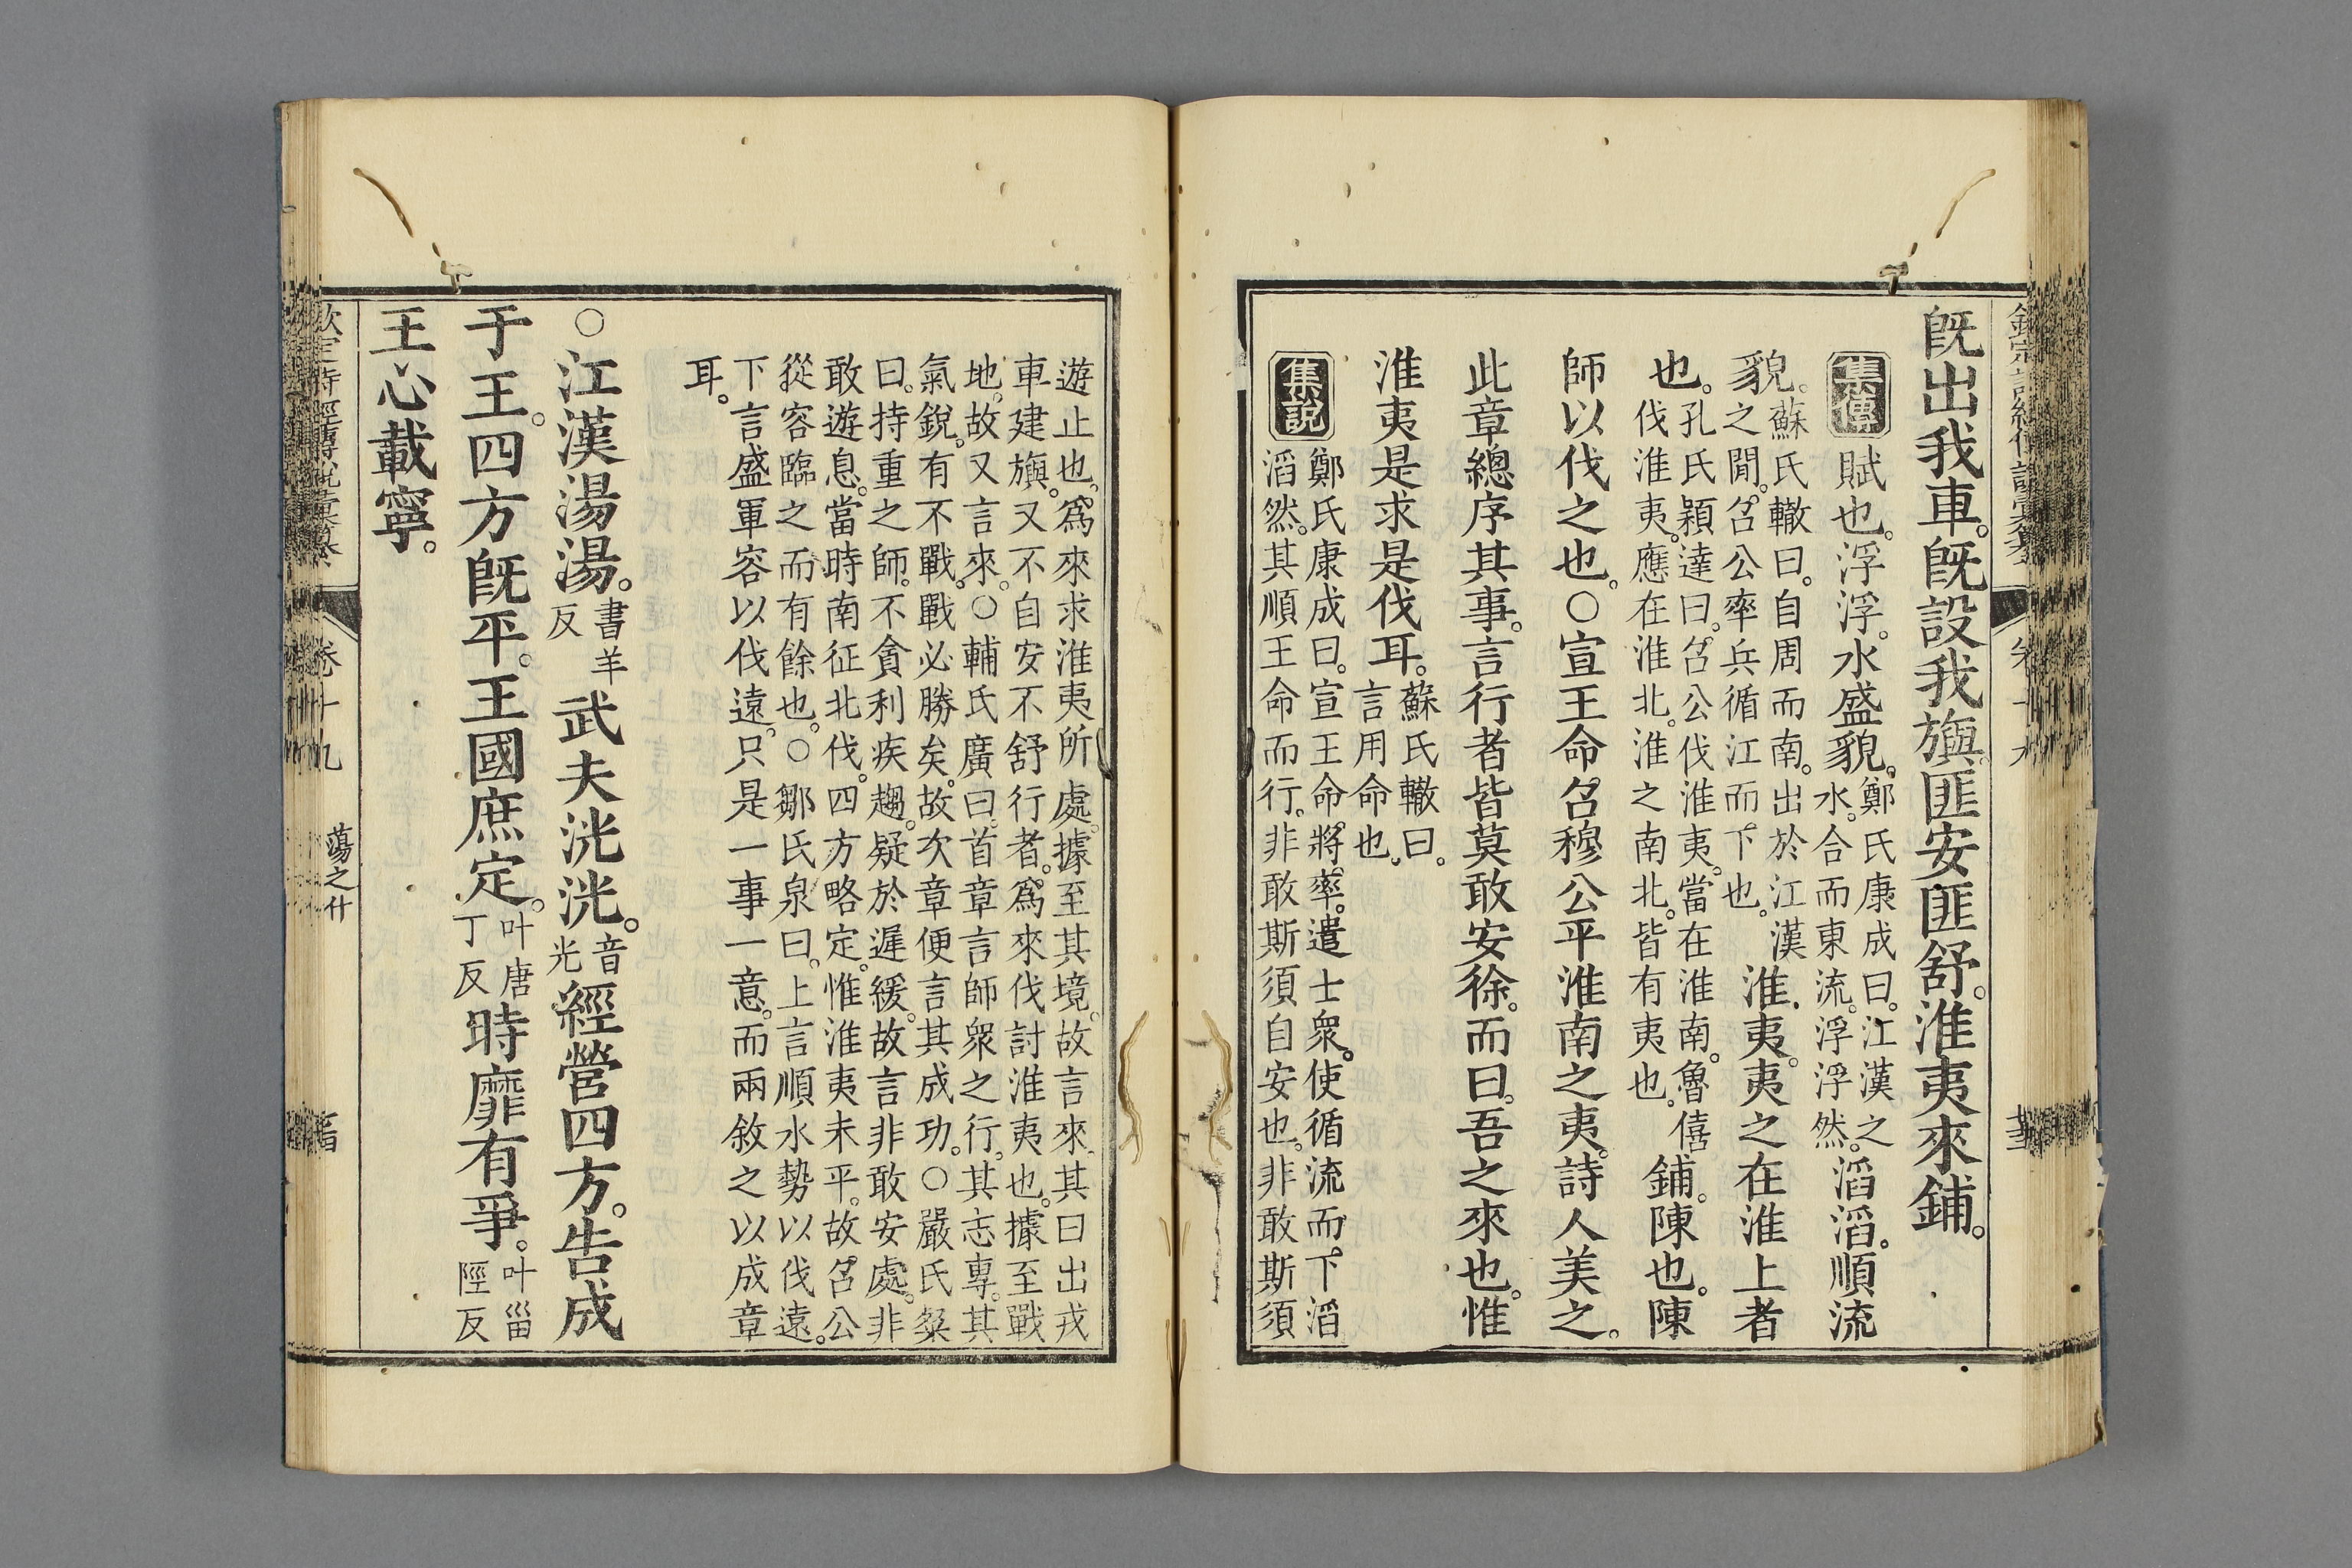 旣出我車。旣設我旟。匪安匪舒。淮夷來鋪。
集傳 賦也。浮浮。水盛貌。鄭氏康成曰。江漢之水。合而東流。浮浮然。滔滔。順流
貌。蘇氏轍曰。自周而南。出於江漢之閒。召公率兵循江而下也。淮夷。夷之在淮上者
也。孔氏穎達曰。召公伐淮夷。當在淮南。魯僖伐淮夷。應在淮北。淮之南北。皆有夷也。鋪。陳也。陳
師以伐之也。○宣王命召穆公平淮南之夷。詩人美之。
此章總序其事。言行者皆莫敢安徐。而曰。吾之來也。惟
淮夷是求是伐耳。蘇氏轍曰。言用命也。
集說 鄭氏康成曰。宣王命將率。遣士衆。使循流而下滔
滔然。其順王命而行。非敢斯須自安也。非敢斯須
遊止也。爲來求淮夷所處。據至其境。故言來。其曰出戎
車建旟。又不自安不舒行者。爲來伐討淮夷也。據至戰
地。故又言來。○輔氏廣曰。首章言師衆之行。其志專。其
氣銳。有不戰。戰必勝矣。故次章便言其成功。○嚴氏粲
曰。持重之師。不貪利疾趨。疑於遲緩。故言非敢安處。非
敢遊息。當時南征北伐。四方略定。惟淮夷未平。故召公
從容臨之而有餘也。○鄒氏泉曰。上言順水勢以伐遠。
下言盛軍容以伐遠。只是一事一意。而兩敘之以成章
耳。
○江漢湯湯。書羊反武夫洸洸。音光經營四方。告成
于王。四方旣平。王國庶定。叶唐丁反時靡有爭。叶甾陘反
王心載寧。
欽定詩經傳說彙纂 卷十九 蕩之什